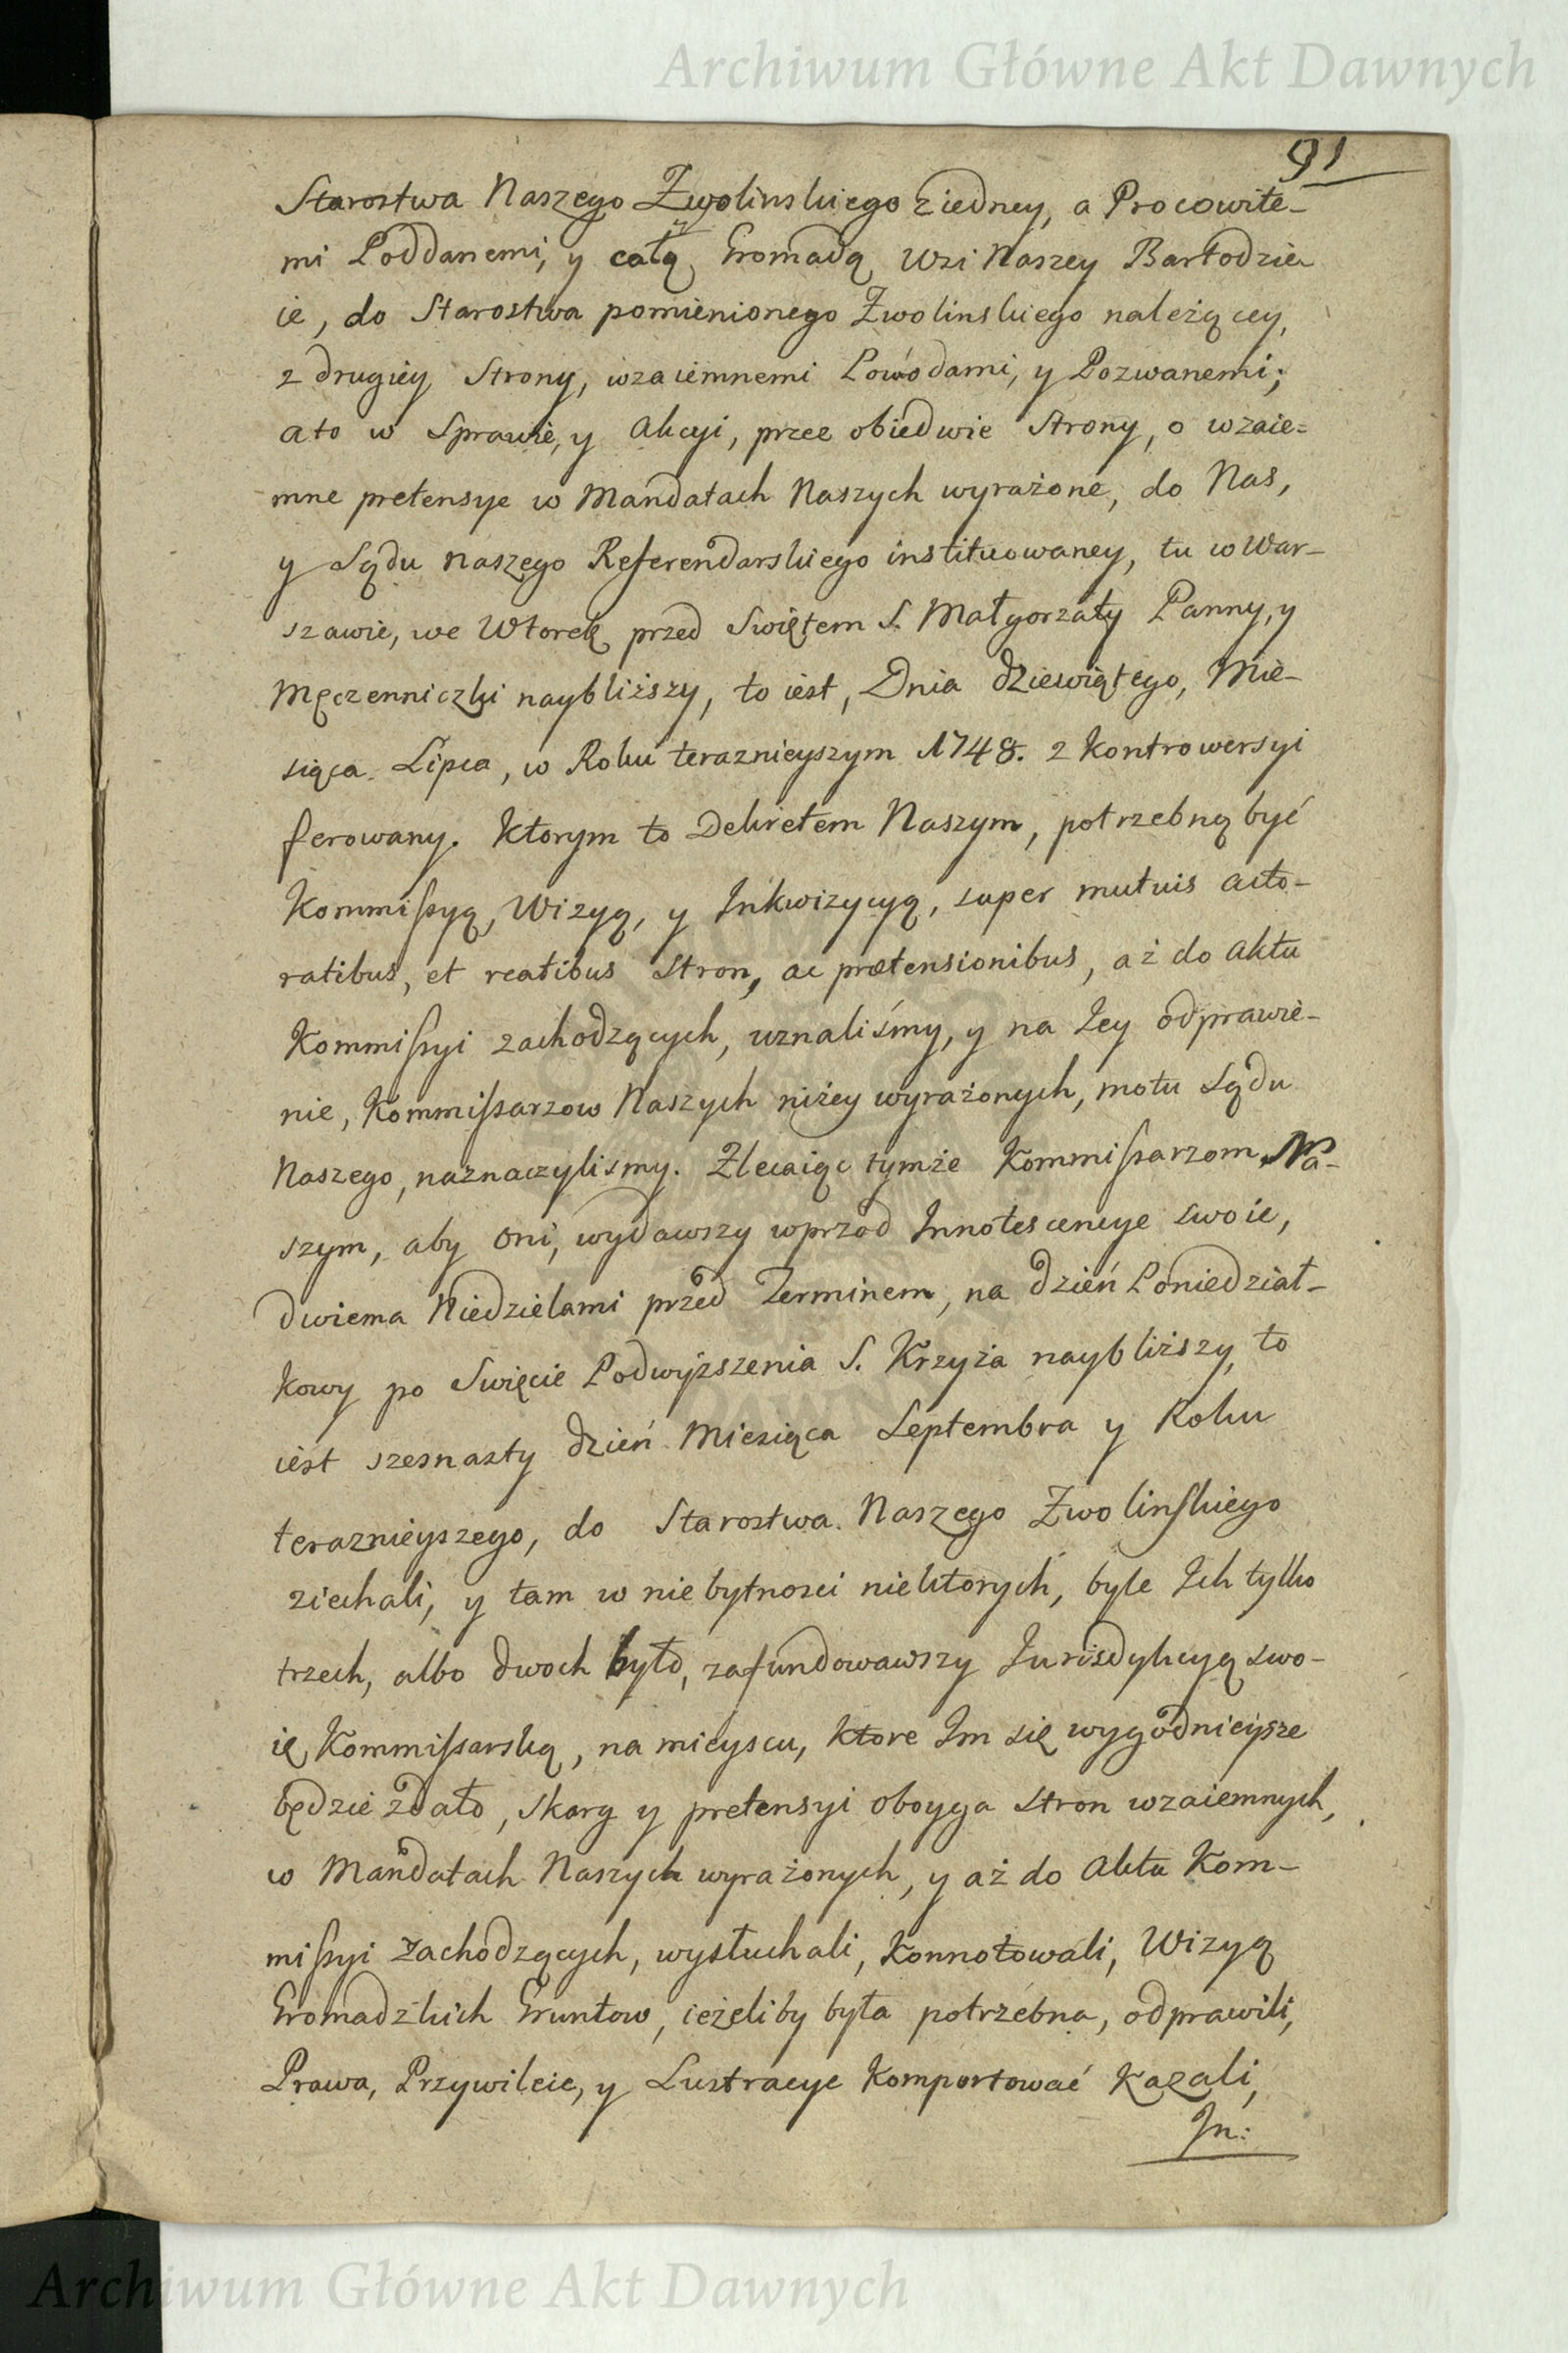 Archiwum Główne Akt Dawnych
91
Starostwa Naszego Zwolinskiego z iedney, a Procowite-
mi Poddanemi, y całą Gromadą Wsi Naszey Bartodzie
ie, do Starostwa pomienionego Zwolinskiego należącey,
z drugiey Strony, wzaiemnemi Powodami, y Pozwanemi;
a to w Sprawie, y Akcyi, przez obiedwie Strony, o wzaie=
mne pretensye w Mandatach Naszych wyrażone, do Nas,
y Sądu naszego Referendarskiego instituowaney, tu w War-
szawie, we Wtorek przed Swiętem S. Małgorzaty Panny, y
Męczenniczki naybliższy, to iest, Dnia dziewiątego, Mie-
siąca Lipca, w Roku teraznieyszym 1748. z Kontrowersyi
ferowany. Ktorym to Dekretem Naszym, potrzebną być
Kommiſsyą, Wizyą, y Inkwizycyą, super mutuis acto-
ratibus, et reatibus Stron, ac prætensionibus, aż do aktu
Kommiſsyi zachodzących, uznaliśmy, y na Iey odprawie-
nie, Kommiſsarzow Naszych niżey wyrażonych, motu Sądu
Naszego, naznaczylismy. Zlecaiąc tymże Kommiſsarzom Na-
szym, aby oni, wydawszy wprzod Innotescencye swoie,
dwiema Niedzielami przed Terminem, na dzień Poniedział-
kowy po Swięcie Podwyższenia S. Krzyża naybliższy, to
iest szesnasty dzień Miesiąca Septembra y Roku
teraznieyszego, do Starostwa Naszego Zwolinſkiego
ziechali, y tam w niebytnosci niektorych, byle Ich tylko
trzech, albo dwoch było, zafundowawszy Iurisdykcyą swo-
ię Kommiſsarską, na mieyscu, ktore Im się wygodnieysze
będzie zdało, skarg y pretensyi oboyga stron wzaiemnych,
w Mandatach Naszych wyrażonych, y aż do aktu Kom-
miſsyi zachodzących, wysłuchali, Konnotowali, Wizyą
Gromadzkich Gruntow, ieżeliby była potrzebna, odprawili,
Prawa, Przywileie, y Lustracye Komportować kazali,
In:
Archiwum Główne Akt Dawnych